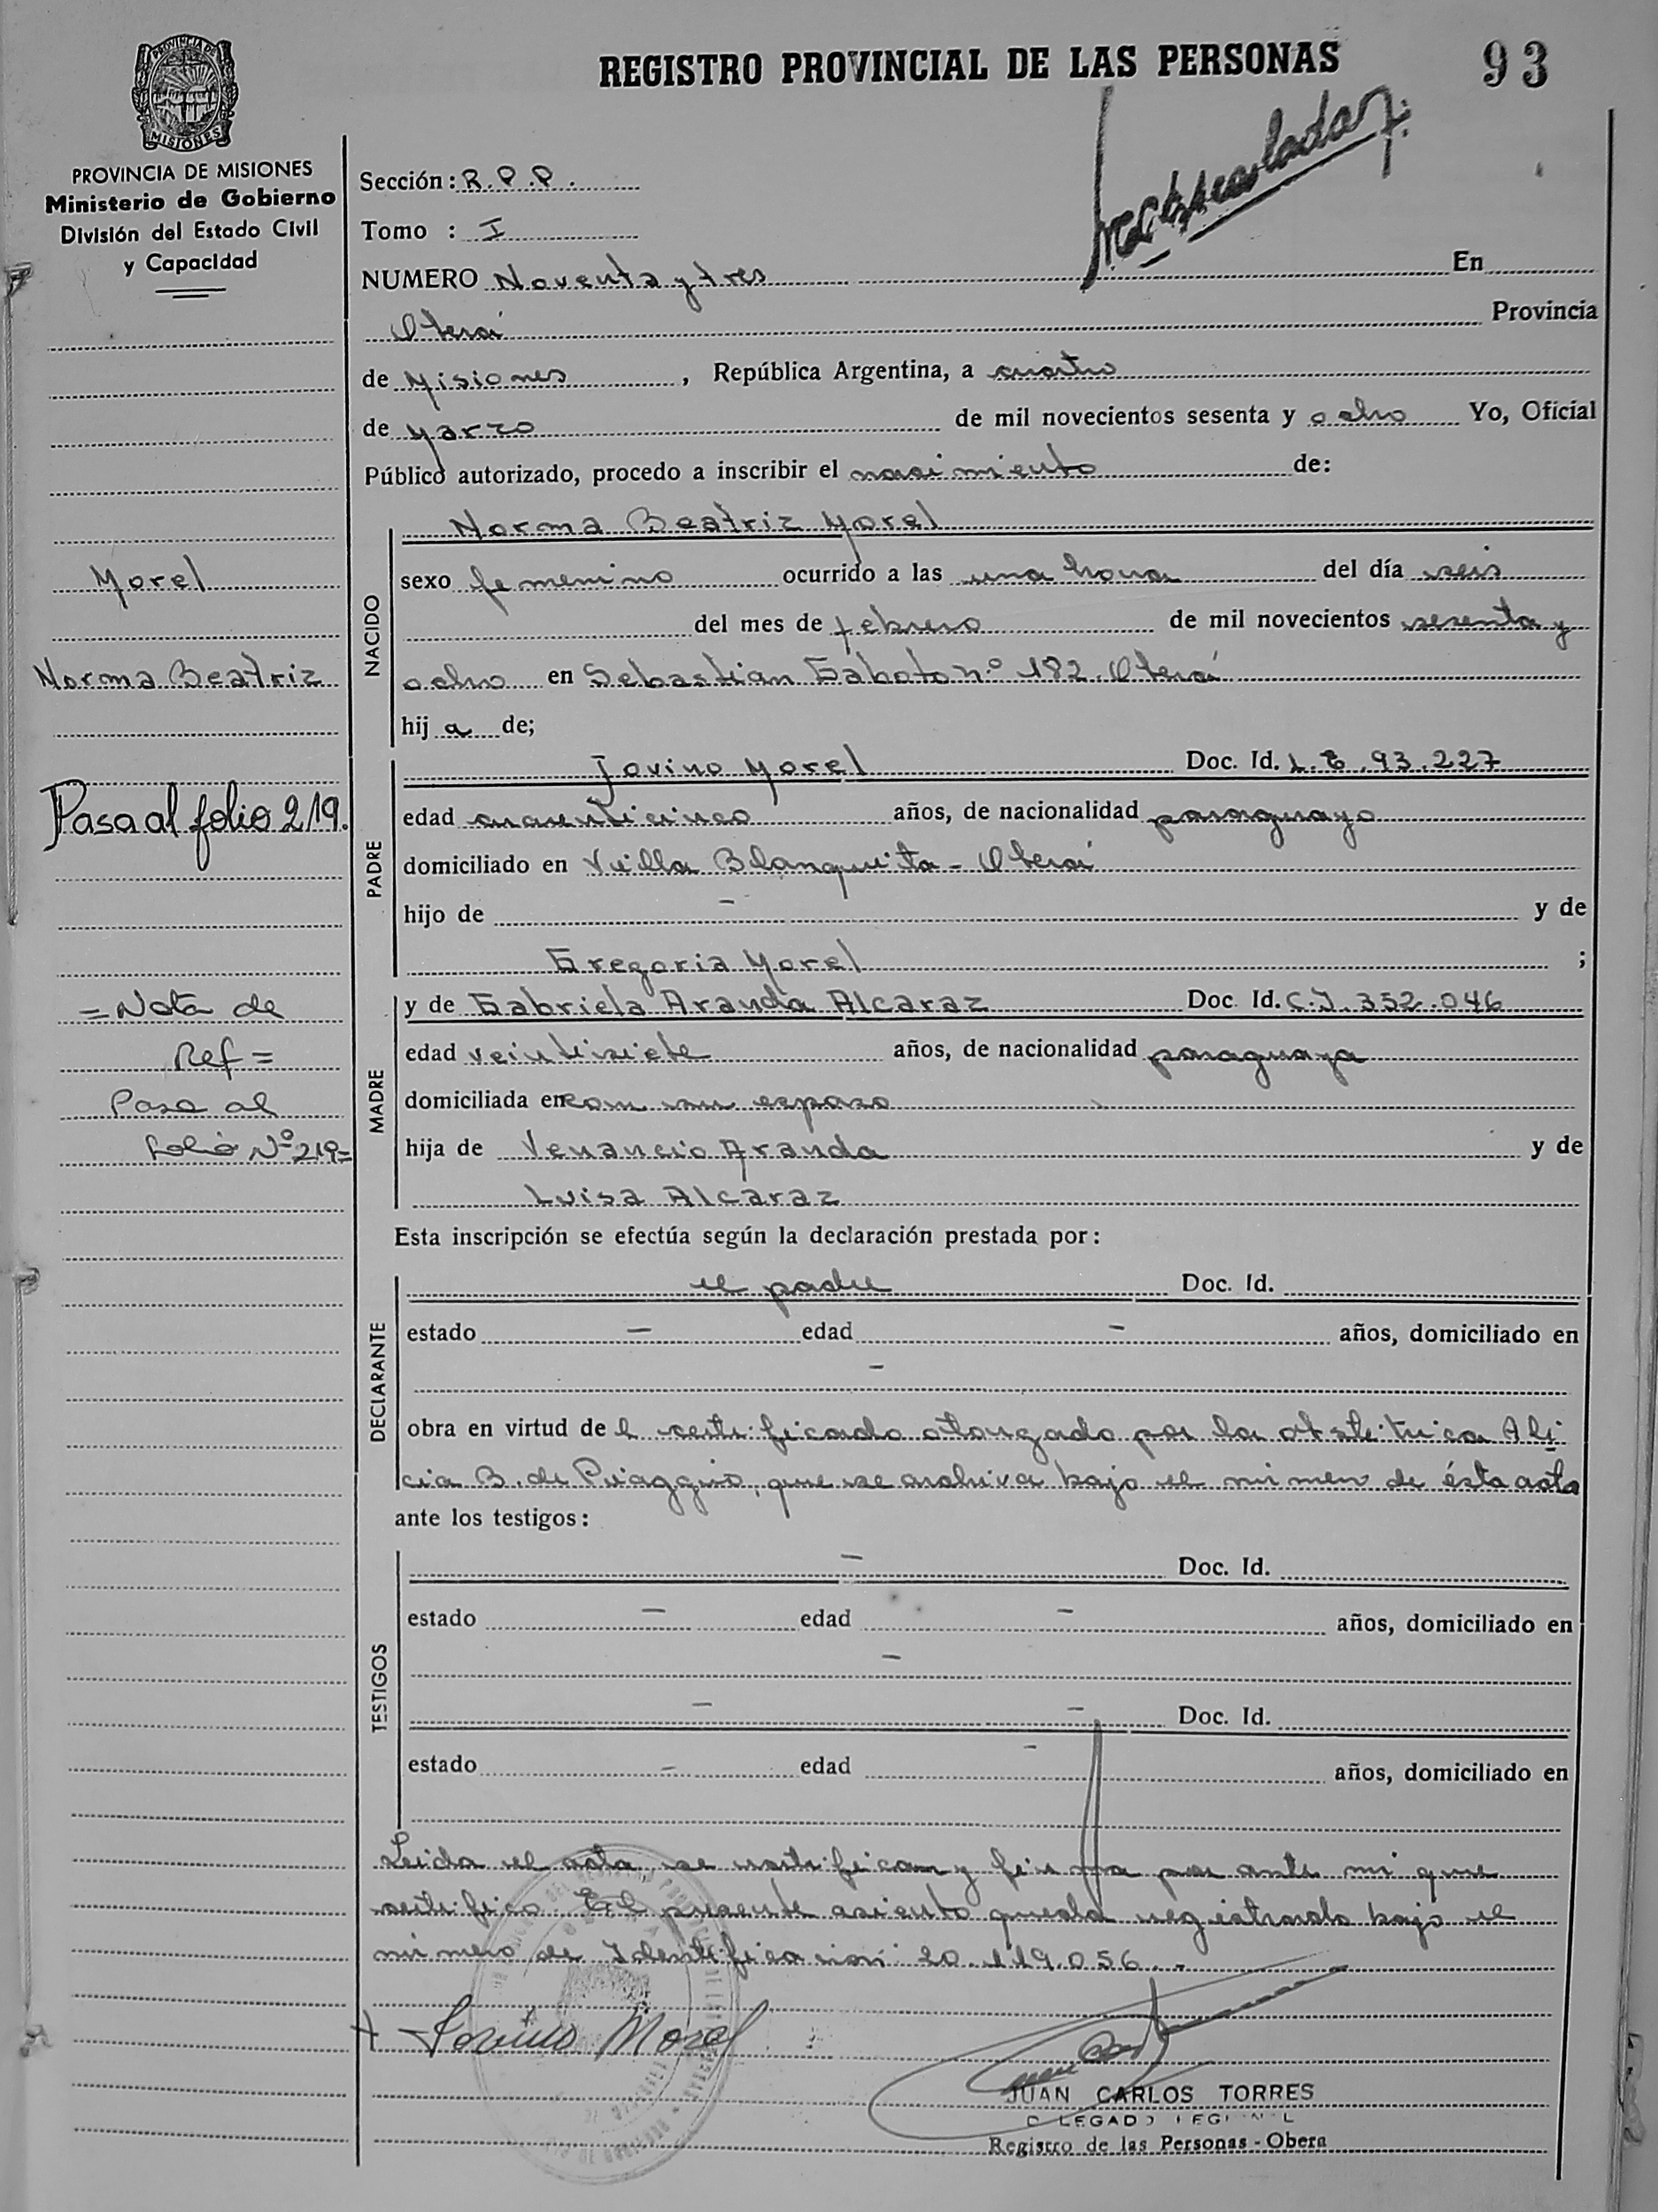 REGISTRO PROVINCIAL DE LAS PERSONAS 93
PROVINCIA DE
MISIONES
PROVINCIA DE MISIONES
Ministerio de Gobierno
División del Estado Civil
y Capacidad
Sección: R.P.P.
Tomo : I
NUMERO Noventa y tres En
Oberá Provincia
de Misiones, República Argentina, a cuatro
de Marzo de mil novecientos sesenta y ocho Yo, Oficial
Público autorizado, procedo a inscribir el nacimiento de:
Norma Beatriz Morel
NACIDO
sexo femenino ocurrido a las una hora del día seis
del mes de febrero de mil novecientos sesenta y
ocho en Sebastian Gaboto nº 182. Oberá
hij a de;
Morel
Norma Beatriz
Pasa al folio 219.
PADRE
Jovino Morel Doc. Id. L.E. 93.227
edad cuarenticinco años, de nacionalidad paraguayo
domiciliado en Villa Blanquita - Oberá
hijo de - y de
Gregoria Morel ;
=Nota de
Ref=
Pasa al
folio Nº 219=
MADRE
y de Gabriela Aranda Alcaraz Doc. Id. C.I. 352.046
edad veintisiete años, de nacionalidad paraguaya
domiciliada en con su esposo
hija de Venancio Aranda y de
Luisa Alcaraz
Esta inscripción se efectúa según la declaración prestada por:
DECLARANTE
el padre Doc. Id.
estado - edad - años, domiciliado en
-
obra en virtud de l certificado otorgado por la obstetrica Ali
cia B. de Piaggio, que se archiva bajo el número de ésta acta
ante los testigos:
TESTIGOS
- Doc. Id.
estado - edad - años, domiciliado en
-
- - Doc. Id.
estado - edad - años, domiciliado en
Leida el acta, se ratifican y firma por ante mi que
certifico. El presente asiento queda registrado bajo el
número de Identificación 20.119.056.-
Jovino Morel
JUAN CARLOS TORRES
Registro de las Personas - Obera